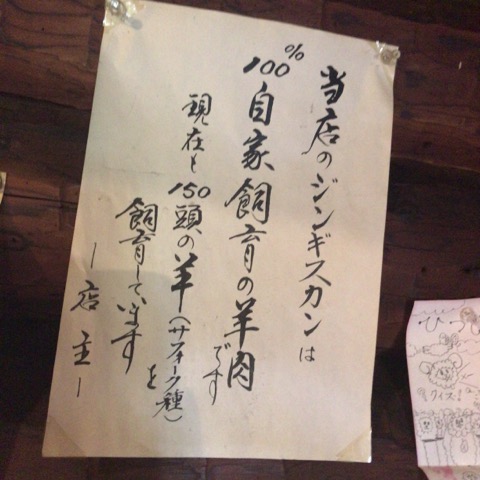 当店のジンギスカンは
100%自家飼育の羊肉です
現在も150頭の羊(サフォーク種)を
飼育しています
ー店主ー
ひつじ
クイズ!